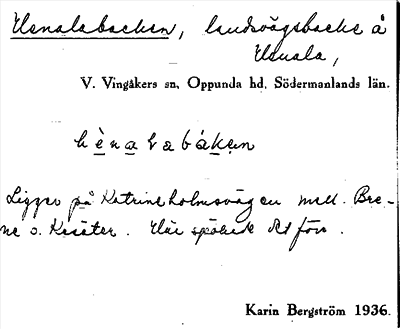 Usnalabacken, landsvägsbacke å
Usnala,
V. Vingåkers sn, Oppunda hd, Södermanlands län.
Ligger på Katrineholmsvägen mell. Bre-
ne o. Kesäter. Här spökade det förr.
Karin Bergström 1936.